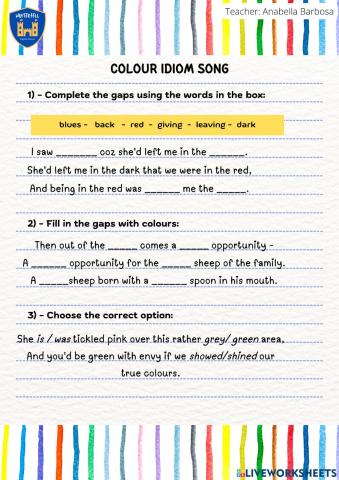 WHITEHILL
Teacher: Anabella Barbosa
COLOUR IDIOM SONG
1) - Complete the gaps using the words in the box:
blues - back - red - giving - leaving - dark
I saw _______ coz she'd left me in the ______.
She'd left me in the dark that we were in the red,
And being in the red was ______ me the _____.
2) - Fill in the gaps with colours:
Then out of the _____ comes a _____ opportunity -
A ______ opportunity for the _____ sheep of the family.
A _____sheep born with a ______ spoon in his mouth.
3) - Choose the correct option:
She is / was tickled pink over this rather grey/ green area,
And you'd be green with envy if we showed/shined our
true colours.
LIVEWORKSHEETS